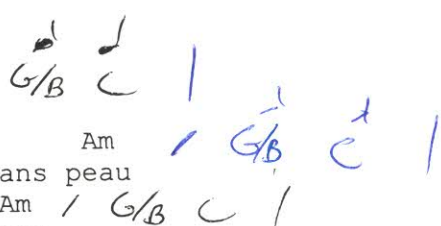 G/B C |
Am / G/B C |
ans peau
Am / G/B C |